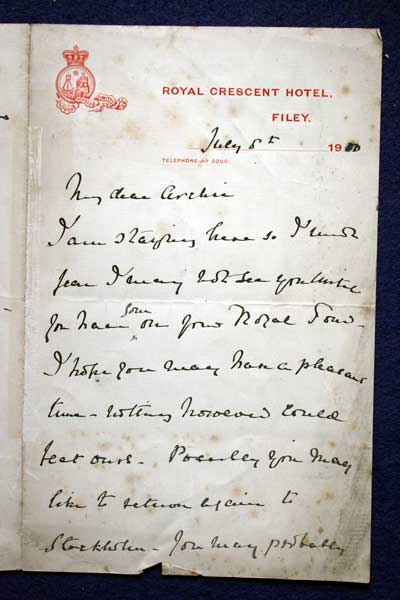 ROYAL CRESCENT HOTEL,
FILEY.
July 8th 19
TELEPHONE Nº 0200.
My dear Archie
I am staying here so I much
fear I may not see you until
you have been on your Royal Tour.
I hope you may have a pleasant
time – nothing however could
beat ours – Possibly you may
like to return again to
Stockholm – You may probably